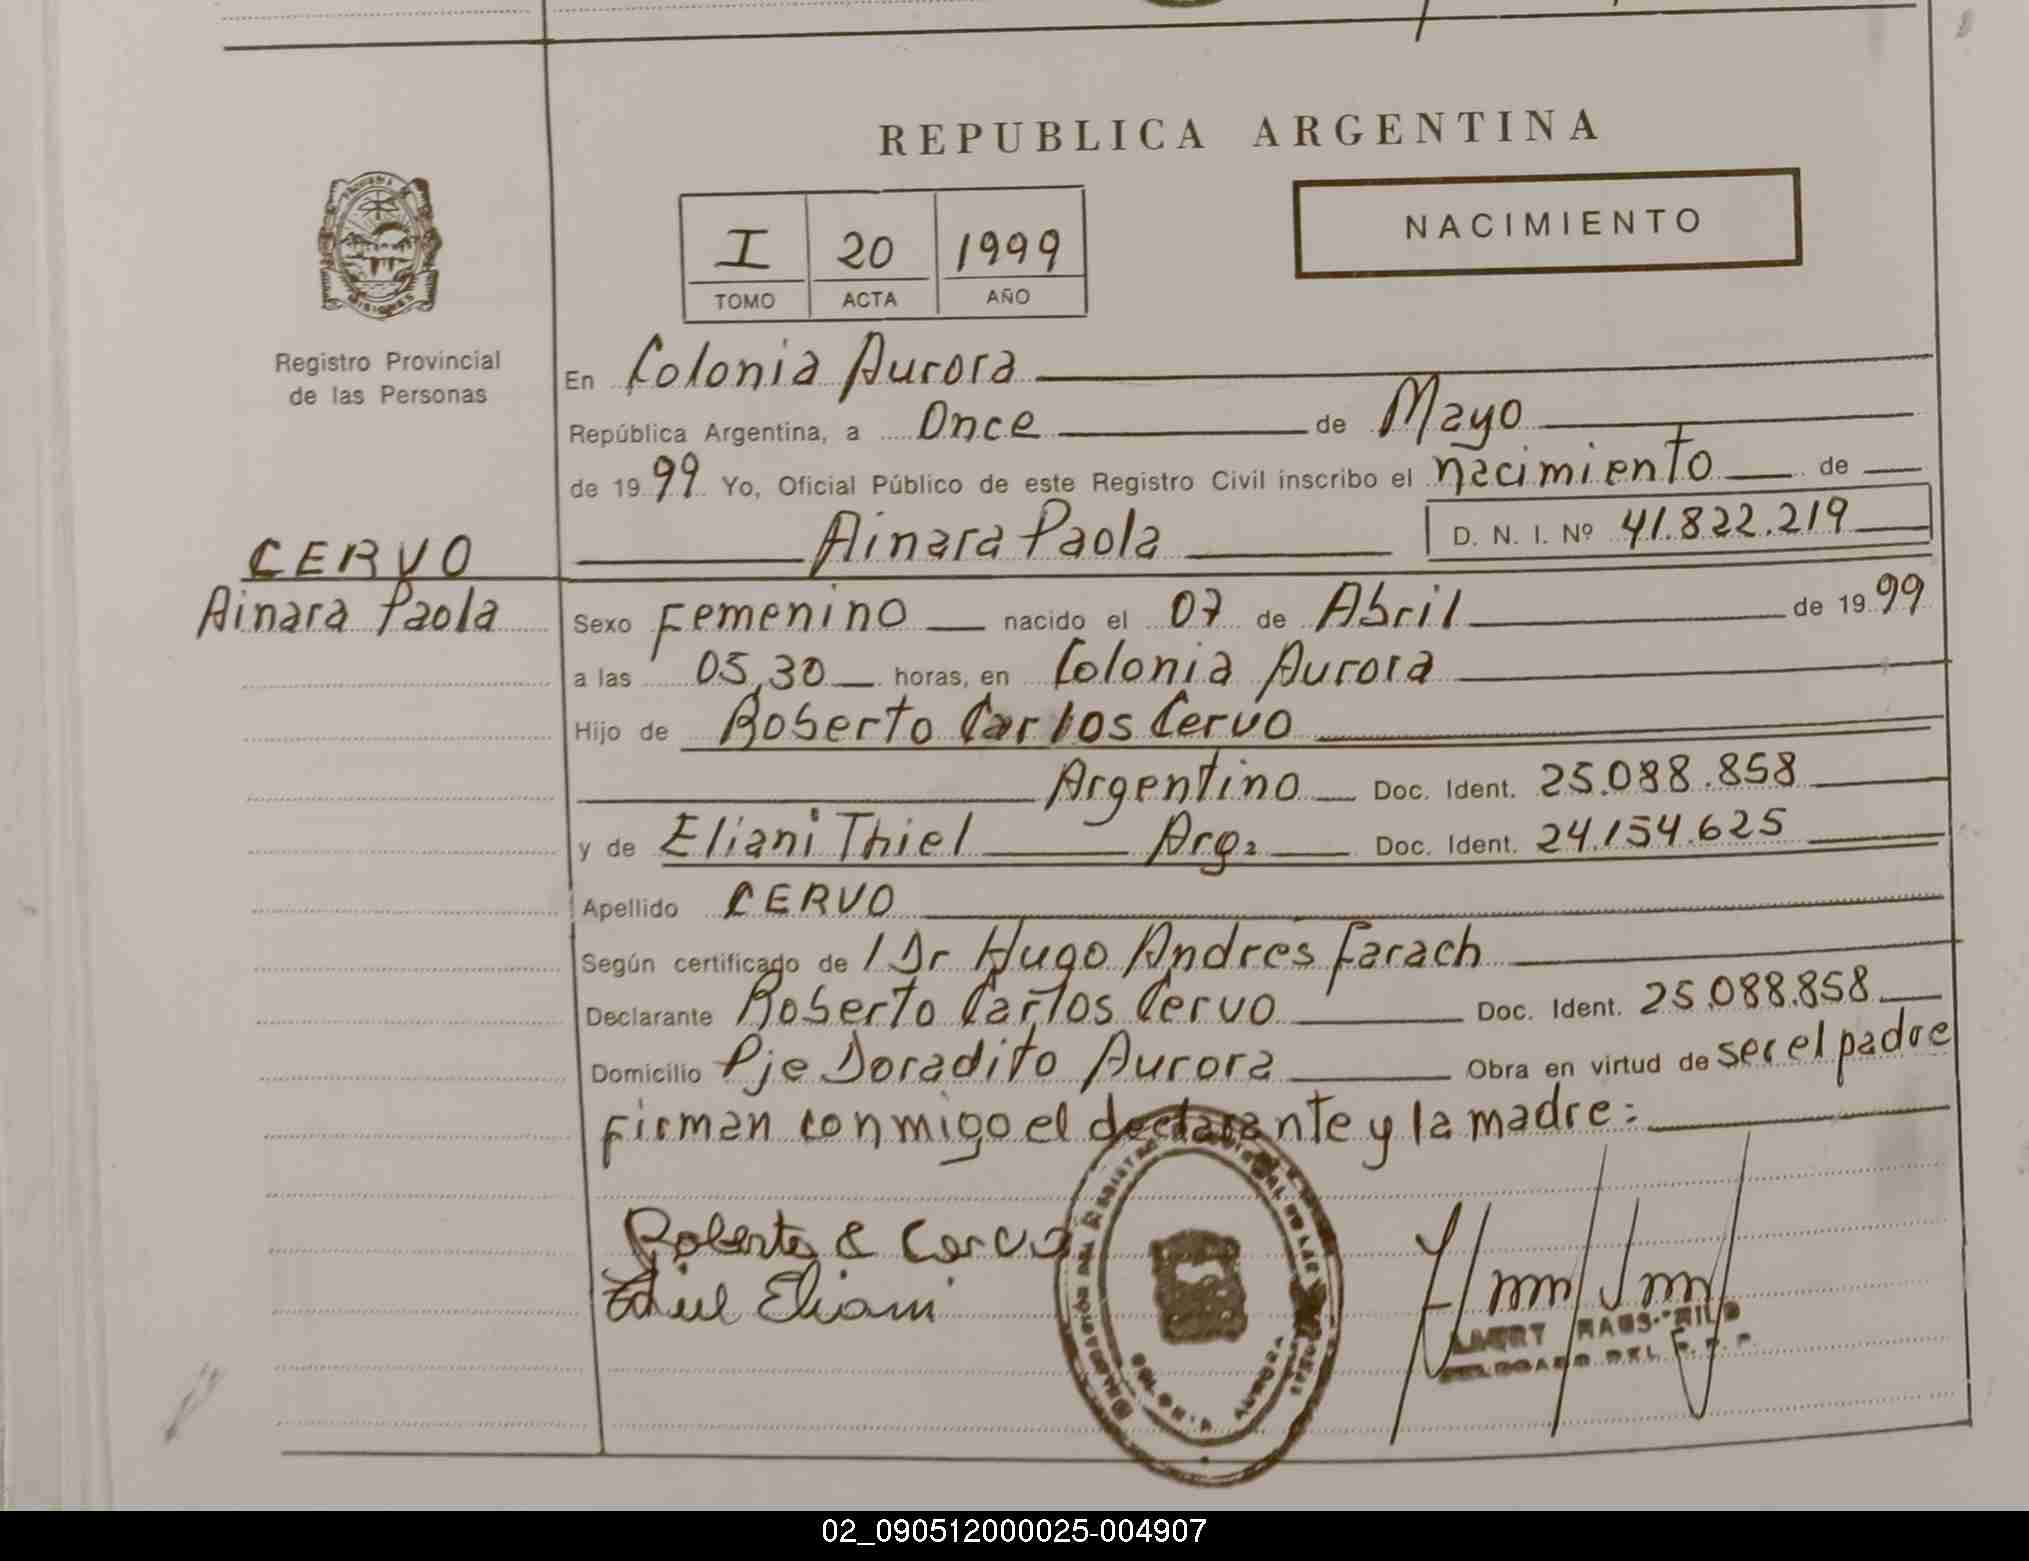 REPUBLICA ARGENTINA
NACIMIENTO
I 20 1999
TOMO ACTA AÑO
MISIONES
Registro Provincial
de las Personas
En Colonia Aurora
República Argentina, a Once de Mayo
de 1999 Yo, Oficial Público de este Registro Civil inscribo el nacimiento de
Ainara Paola D. N. I. Nº 41.822.219
CERVO
Ainara Paola
Sexo Femenino nacido el 07 de Abril de 1999
a las 05,30 horas, en Colonia Aurora
Hijo de Roberto Carlos Cervo
Argentino Doc. Ident. 25.088.858
y de Eliani Thiel Arg. Doc. Ident. 24.154.625
Apellido CERVO
Según certificado de l Dr Hugo Andres Farach
Declarante Roberto Carlos Cervo Doc. Ident. 25.088.858
Domicilio Pje Doradito Aurora Obra en virtud de ser el padre
Firman conmigo el declarante y la madre:
Roberto C Cervo
Thiel Eliani
COLONIA AURORA
DELEGADO DEL R. P. P.
02_090512000025-004907